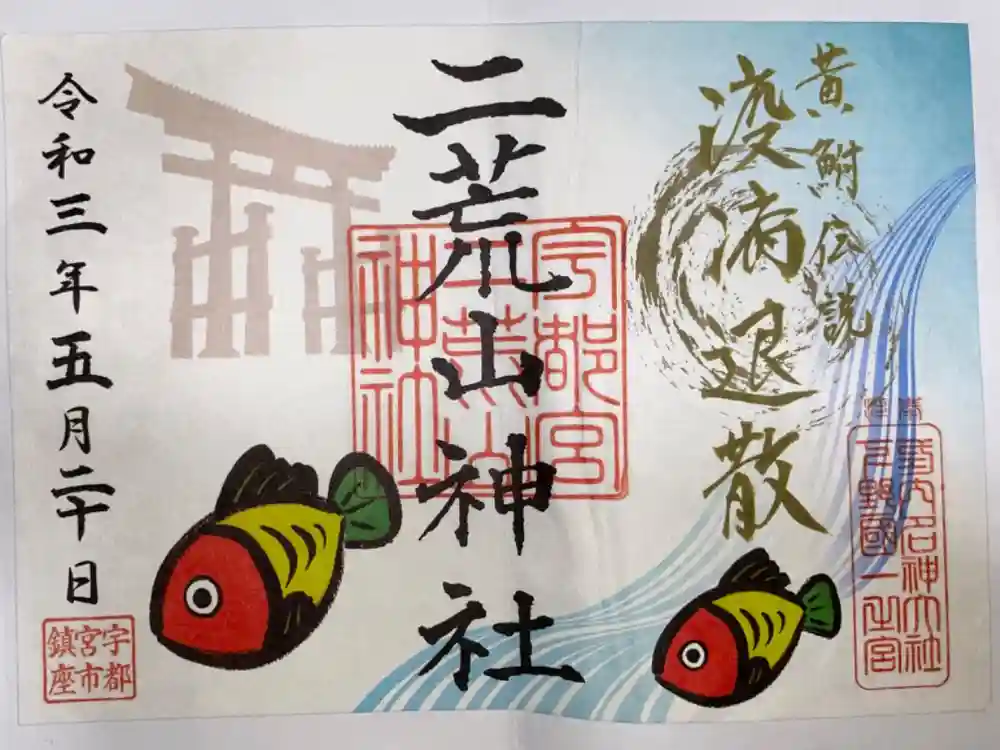 黄鮒伝説
疫病退散
二荒山神社
宇都宮
二荒山
神社
名神大社
下野國一之宮
令和三年五月二十日
宇都
宮市
鎮座